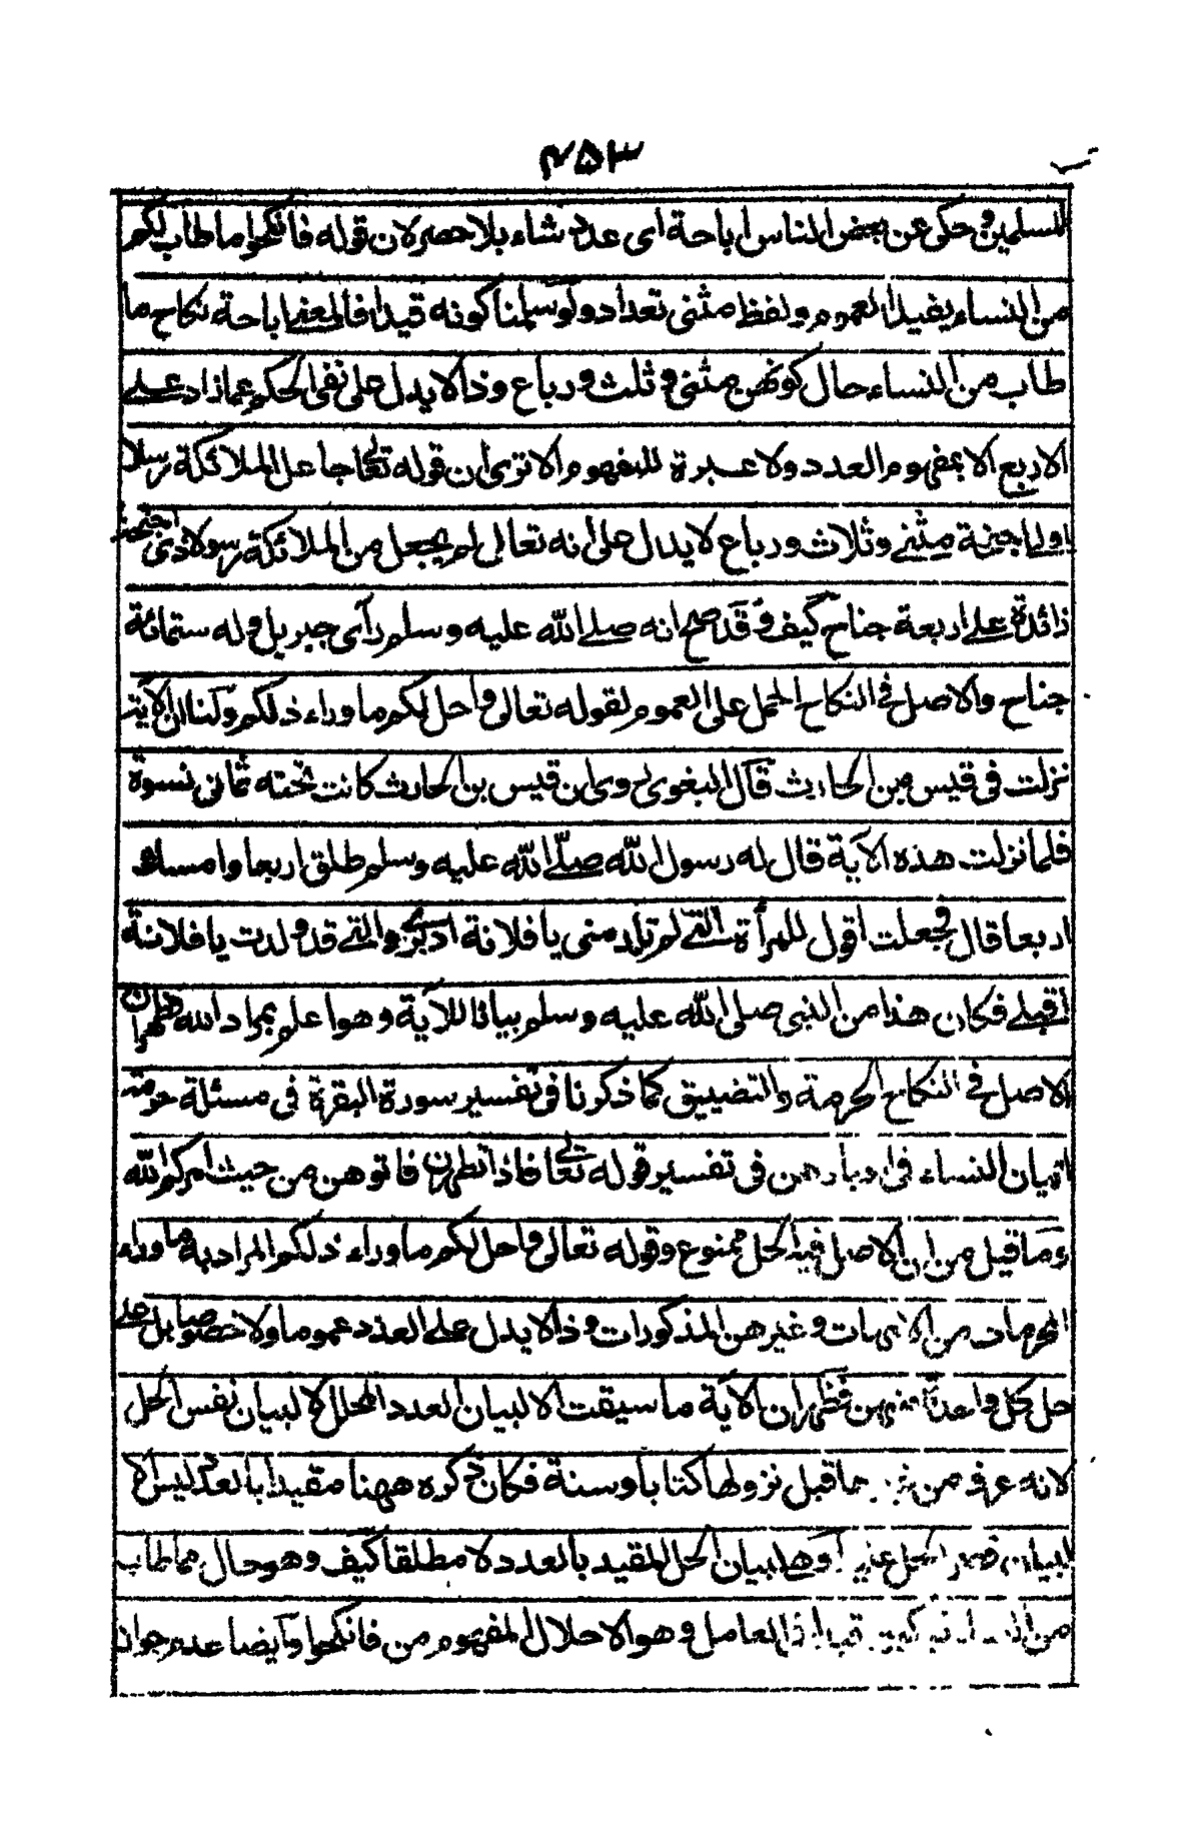 ٤٥٣
للمسلمين وحكى عن بعض الناس اباحة اى عدد شاء بلا حصر لان قوله فانكحوا ما طاب لكم
من النساء يفيد العموم ولفظ مثنى تعداد ولو سلمنا كونه قيدا فالمعنى اباحة نكاح ما
طاب من النساء حال كونهن مثنى وثلث ورباع وذا لا يدل على نفى الحكم عما زاد على
الاربع الا بمفهوم العدد ولا عبرة للمفهوم الا ترى ان قوله تعالى جاعل الملائكة رسلا
اولى اجنحة مثنى وثلاث ورباع لا يدل على انه تعالى لم يجعل من الملائكة رسولا ذى اجنحة
زائدة على اربعة جناح كيف وقد صح انه صلى الله عليه وسلم رآى جبريل وله ستمائة
جناح والاصل فى النكاح الحمل على العموم لقوله تعالى واحل لكم ما وراء ذلكم ولنا ان الآية
نزلت فى قيس بن الحارث قال البغوى روى ان قيس بن الحارث كانت تحته ثمانى نسوة
فلما نزلت هذه الآية قال له رسول الله صلى الله عليه وسلم طلق اربعا وامسك
اربعا قال فجعلت اقول للمرأة التى لم تلد منى يا فلانة ادبرى والتى قد ولدت يا فلانة
اقبلى فكان هذا من النبى صلى الله عليه وسلم بيانا للآية وهو اعلم بمراد الله فظهر ان
الاصل فى النكاح الحرمة والتضييق كما ذكرنا فى تفسير سورة البقرة فى مسئلة حرمة
اتيان النساء فى ادبارهن فى تفسير قوله تعالى فاذا تطهرن فاتوهن من حيث امركم الله
وما قيل من ان الاصل فيه الحل ممنوع وقوله تعالى واحل لكم ما وراء ذلكم المراد به ما وراء
المحرمات من الامهات وغيرهن المذكورات وذا لا يدل على العدد عموما ولا خصوصا بل على
حل كل واحدة منهن فظهر ان الآية ما سيقت الا لبيان العدد المحلل لا لبيان نفس الحل
لانه عرف من قبل نزولها كتابا وسنة فكان ذكره ههنا مقيدا بالعدد ليس الا
لبيان الحل او هى لبيان الحل المقيد بالعدد لا مطلقا كيف وهو حال مما طاب
من العامل وهو الاحلال المفهوم من فانكحوا وايضا عدم جواز